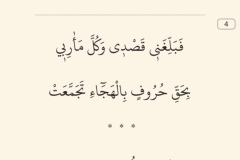 4
فَبَلِّغَنِي قَصْدِي وَكُلَّ مَأَرِبِي
بِحَقِّ حُرُوفٍ بِالْهِجَاءِ تَجَمَّعَتْ
* * *